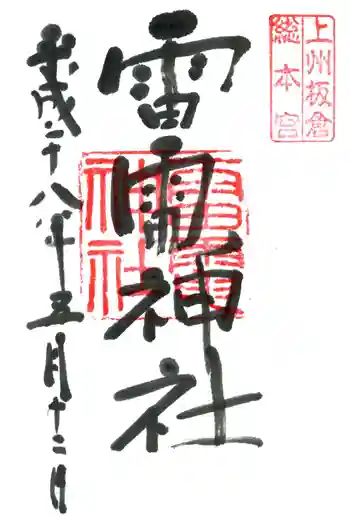 上州板倉
総本宮
雷電神社
雷電
神社
平成二十八年五月十二日